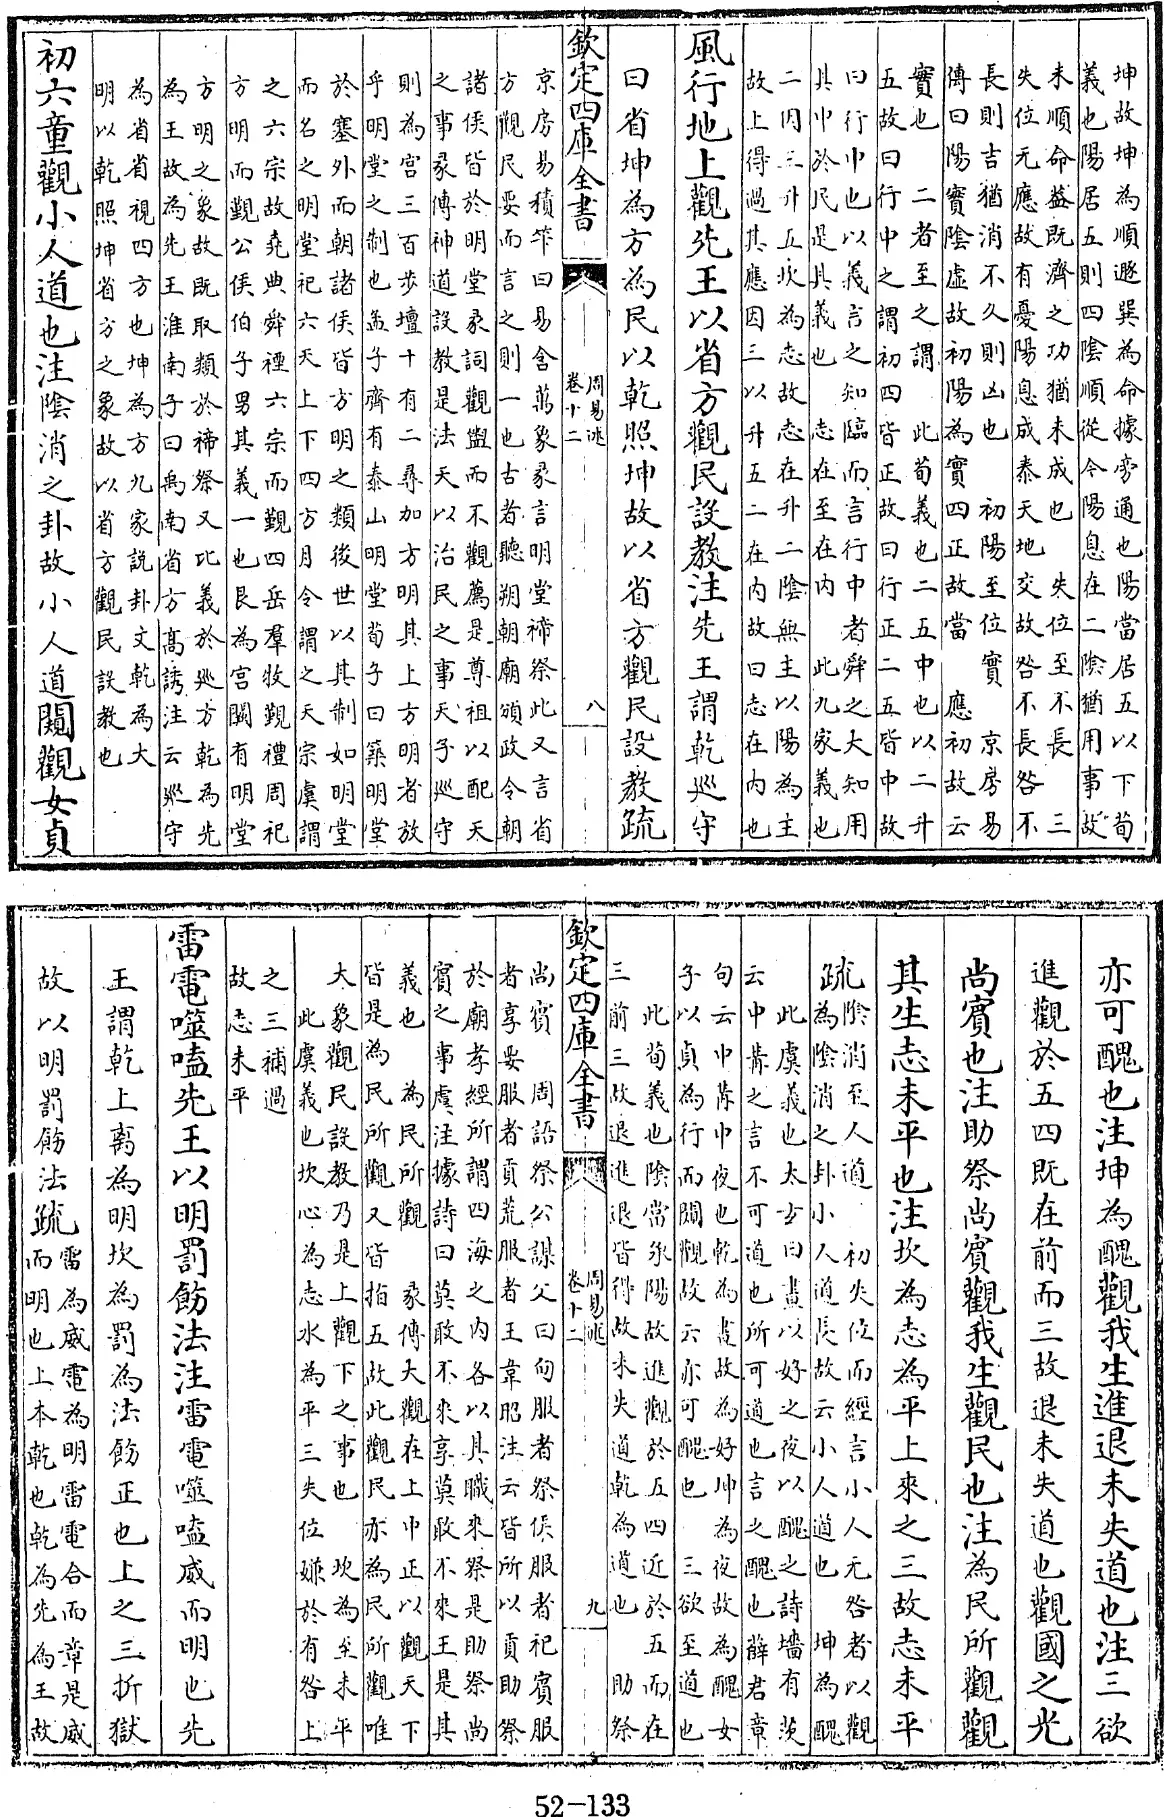 坤故坤為順遯巽為命據旁通也陽當居五以下荀
義也陽居五則四陰順從今陽息在二陰猶用事故
未順命益既濟之功猶未成也　失位至不長　三
失位无應故有憂陽息成泰天地交故咎不長咎不
長則吉猶消不久則凶也　初陽至位實　京房易
傳曰陽實陰虛故初陽為實四正故當　應初故云
實也　二者至之謂　此荀義也二五中也以二升
五故曰行中之謂初四皆正故曰行正二五皆中故
曰行中也以義言之知臨而言行中者舜之大知用
其中於民是其義也　志在至在内　此九家義也
二因三升五坎為志故志在升二陰無主以陽為主
故上得過其應因三以升五二在内故曰志在内也
風行地上觀先王以省方觀民設教注先王謂乾廵守
曰省坤為方為民以乾照坤故以省方觀民設教疏
欽定四庫全書
周易述
卷十二
八
京房易積筭曰易含萬象彖言明堂禘祭此又言省
方觀民要而言之則一也古者聽朔朝廟頒政令朝
諸侯皆於明堂彖詞觀盥而不觀薦是尊祖以配天
之事彖傳神道設教是法天以治民之事天子廵守
則為宫三百步壇十有二尋加方明其上方明者放
乎明堂之制也孟子齊有泰山明堂荀子曰築明堂
於塞外而朝諸侯皆方明之類後世以其制如明堂
而名之明堂祀六天上下四方月令謂之天宗虞謂
之六宗故堯典舜禋六宗而覲四岳羣牧覲禮周祀
方明而覲公侯伯子男其義一也艮為宫闕有明堂
方明之象故既取類於禘祭又比義於廵方乾為先
為王故為先王淮南子曰禹南省方髙誘注云廵守
為省省視四方也坤為方九家説卦文乾為大
明以乾照坤省方之象故以省方觀民設教也
初六童觀小人道也注陰消之卦故小人道闚觀女貞
亦可醜也注坤為醜觀我生進退未失道也注三欲
進觀於五四既在前而三故退未失道也觀國之光
尚賓也注助祭尚賓觀我生觀民也注為民所觀觀
其生志未平也注坎為志為平上來之三故志未平
疏
陰消至人道　初失位而經言小人无咎者以觀
為陰消之卦小人道長故云小人道也　坤為醜
此虞義也太𤣥曰晝以好之夜以醜之詩墻有茨
云中冓之言不可道也所可道也言之醜也薛君章
句云中冓中夜也乾為晝故為好坤為夜故為醜女
子以貞為行而闚觀故云亦可醜也　三欲至道也
此荀義也陰當承陽故進觀於五四近於五而在
三前三故退進退皆得故未失道乾為道也　助祭
欽定四庫全書
周易述
卷十二
九
尚賓　周語祭公謀父曰甸服者祭侯服者祀賓服
者享要服者貢荒服者王韋昭注云皆所以貢助祭
於廟孝經所謂四海之内各以其職來祭是助祭尚
賓之事虞注據詩曰莫敢不來享莫敢不來王是其
義也　為民所觀　彖傳大觀在上中正以觀天下
皆是為民所觀又皆指五故此觀民亦為民所觀唯
大象觀民設教乃是上觀下之事也　坎為至未平
此虞義也坎心為志水為平三失位嫌於有咎上
之三補過
故志未平
雷電噬嗑先王以明罰飭法注雷電噬嗑威而明也先
王謂乾上离為明坎為罰為法飭正也上之三折獄
故以明罰飭法疏
雷為威電為明雷電合而章是威
而明也上本乾也乾為先為王故
52-133